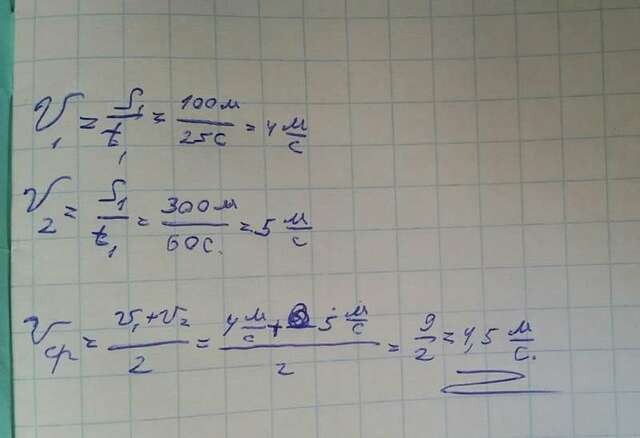 V₁ = S₁/t₁ = 100м/25с = 4 м/с
V₂ = S₁/t₁ = 300м/60с. = 5 м/с
Vср = (V₁+V₂)/2 = (4 м/с + 5 м/с)/2 = 9/2 = 4,5 м/с.